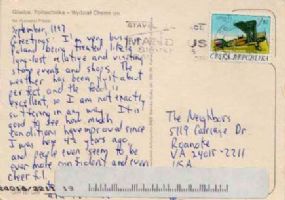 Gliwice. Politechnika - Wydział Chem
September, 1997
Greetings! I'm very busy in
Poland being treated like a
long-lost relative and visiting
story events and shops. The
weather has been just about
perfect and the food is
excellent, so I am not exactly
suffering in any way. It is
good to see how much
conditions have improved since
I was here years ago,
and people even seem to be
ever more confident and even
cheerful.
ČESKÁ REPUBLIKA
The Neighbors
5719 Carriage Dr
Roanoke
VA 24018-2211
USA